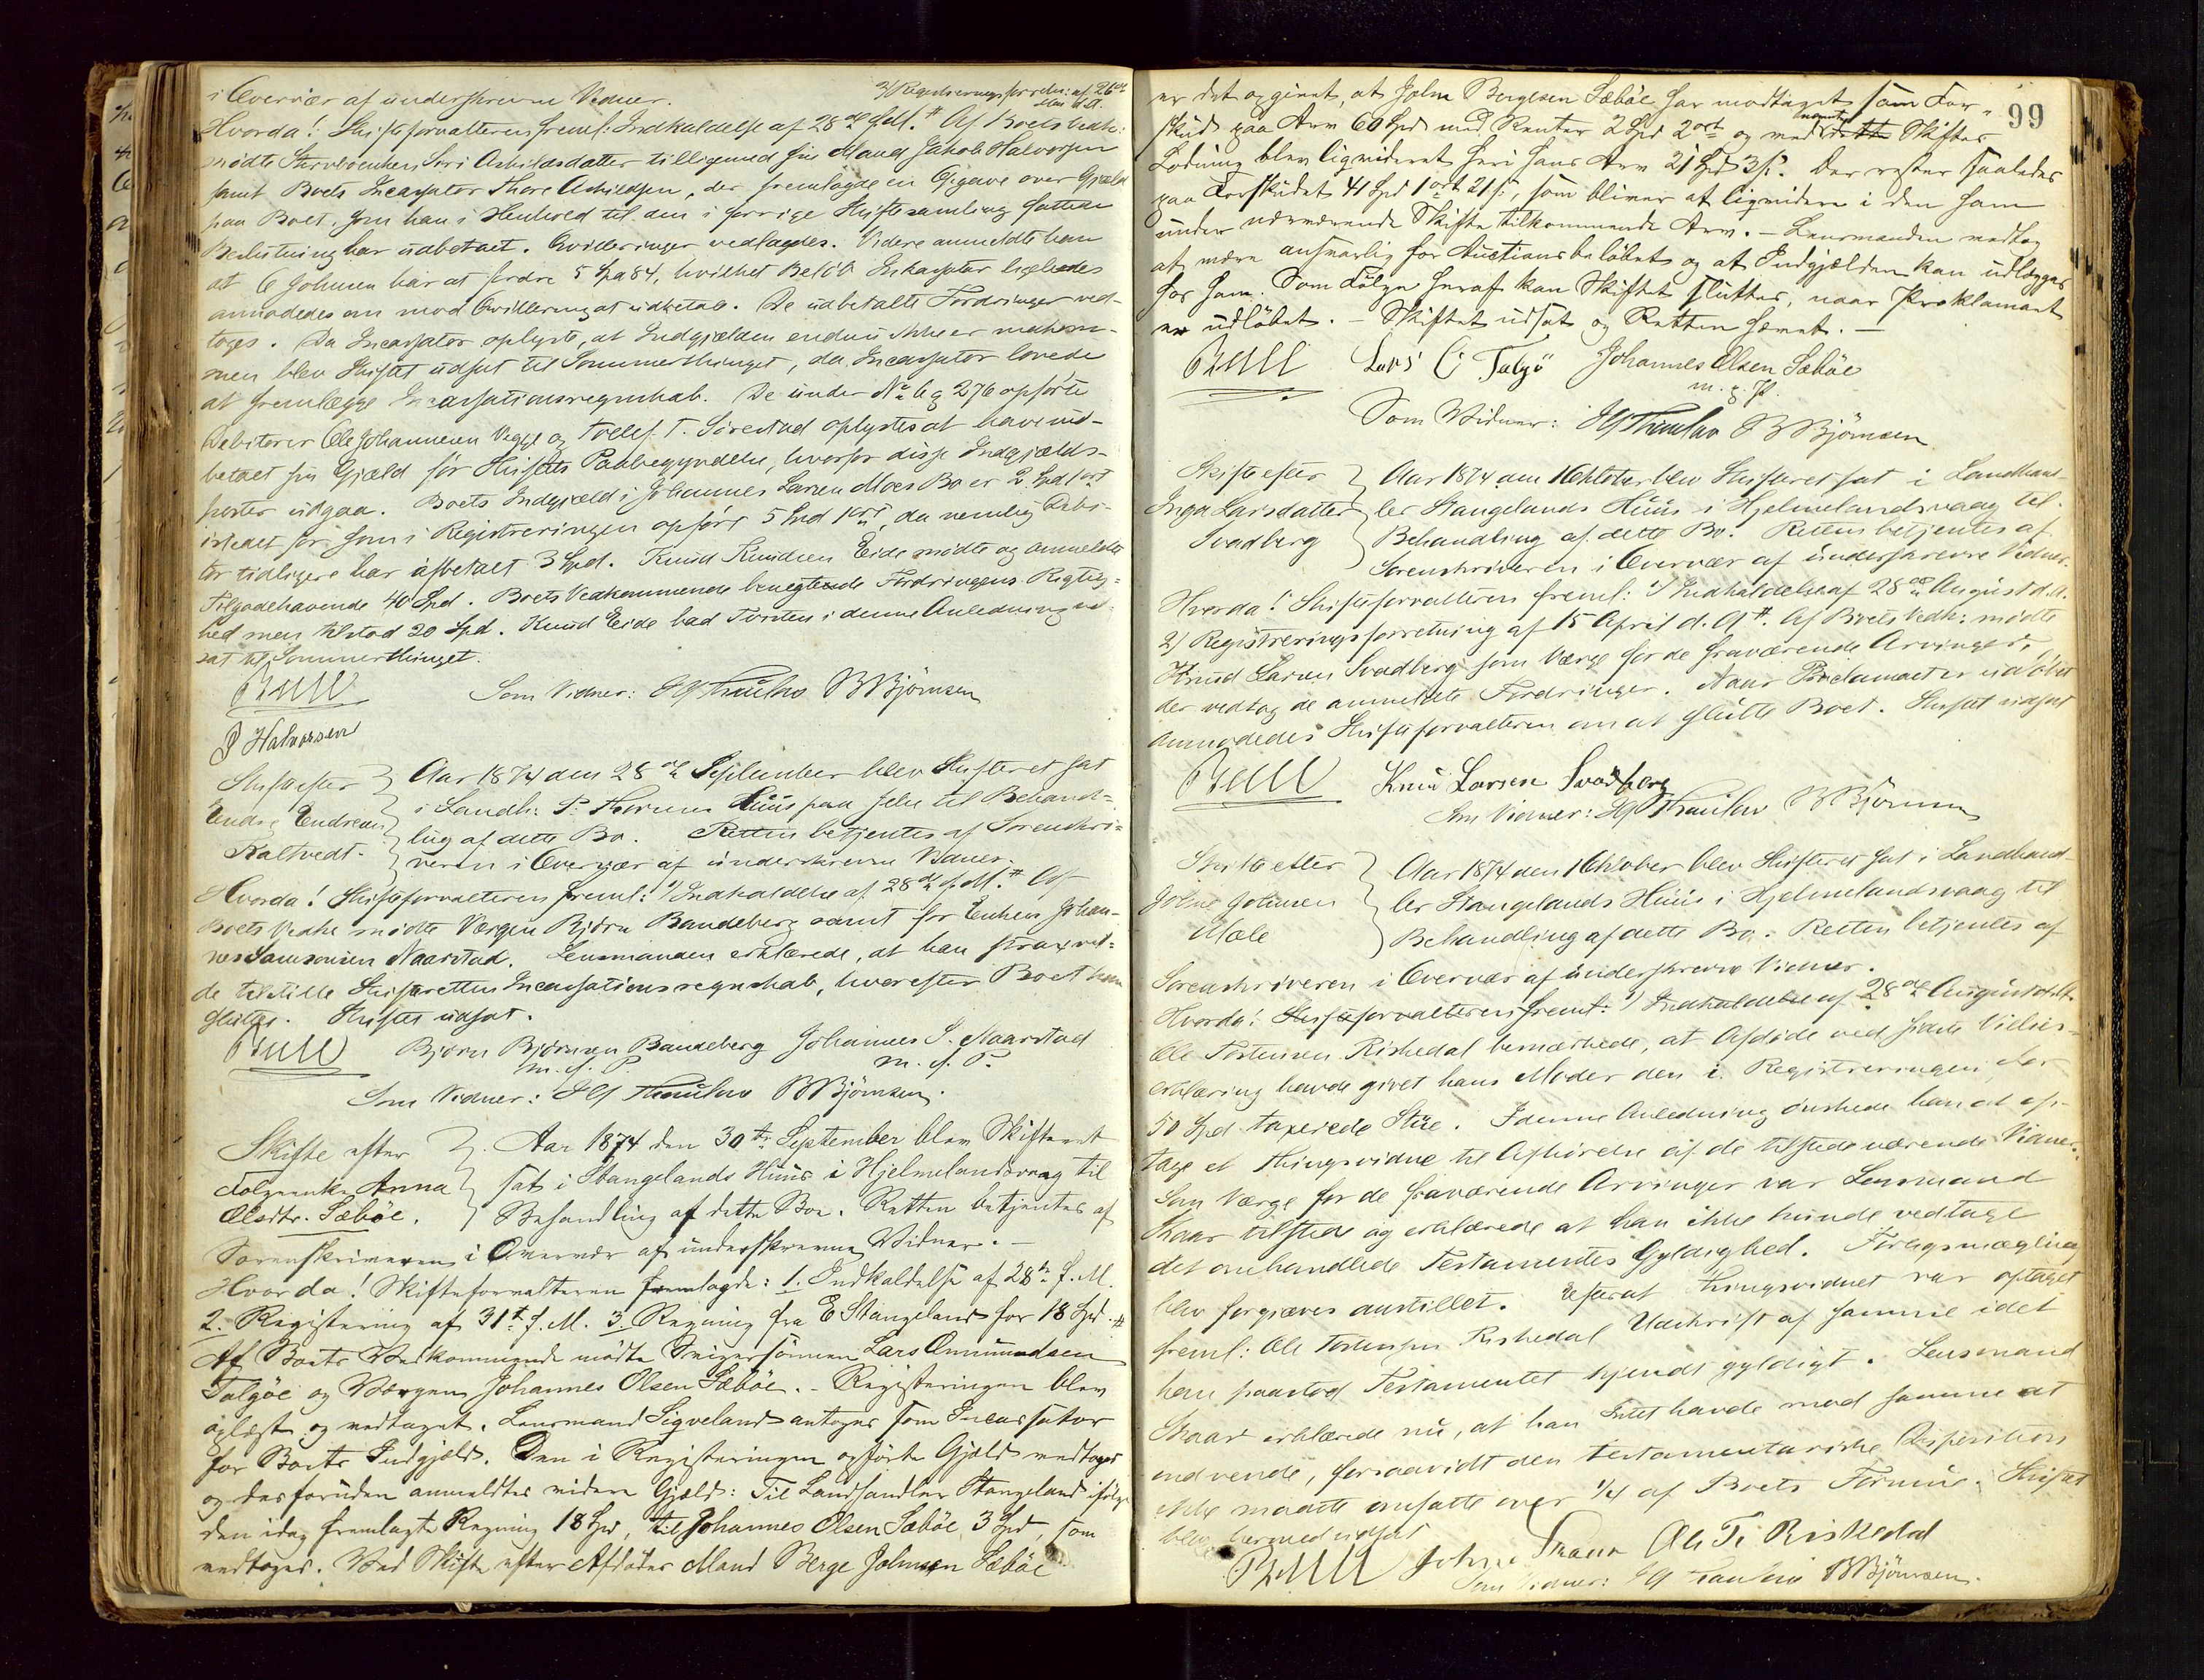 i Overvær af underskrevne Vidner.
2/ Registreringsforretn: af 26de
Hvorda!: Skifteforvalteren freml: Indkaldelse af 28de f. M. # Af Boets Vedk:
mødte Stervboenken Siri Askildsdatter tilligemed sin Mand Jakob Halvorsen
samt Boets Incassator Thore Askildsen, der fremlagde en Opgave over Gjæld
paa Boet, som han i Henhold til den i forrige Skiftesamling fattede
Beslutning har udbetalt. Qvitteringer vedlagdes. Videre anmeldte han
at C Johnsen har at fordre 5 Spd 84, hvilket Beløb Inkassator ligeledes
anmodedes om mod Qvittering at udbetale. De udbetalte Fordringer ved-
toges. Da Incassator oplyste, at Indgjælden endnu ikke er indkom-
men blev Skiftet udsat til Sommerthinget, da Incassator lovede
at fremlægge Incassationsregnskab. De under No 6 og 276 opførte
Debitorer Ole Johannesen Vegge og Tollef T. Sørestad oplystes at have ind-
betalt sin Gjæld før Skiftets Paabegyndelse, hvorfor disse Indgjælds-
poster udgaa. Boets Indgjæld i Johannes Larsen Moes Bo er 2 Spd 1 ort
istedet for som i Registreringen opført 5 Spd 1 ort, da nemlig Debi-
tor tidligere har afbetalt 3 Spd. Knud Knudsen Eide mødte og anmeldte
Tilgodehavende 40 Spd. Boets Vedkommende benegtede Fordringens Rigtig-
hed men tilstod 20 Spd. Knud Eide bad Forsten i denne Anledning ud-
sat til Sommerthinget.
Bull Som Vidner: HG Thaulow B Bjørnsen
J Halvorsen
Skifte efter
Endre Endresen
Kaltvedt.
Aar 1874 den 28de September blev Skifteret sat
i Landh: P. Huus paa Jelse til Behand-
ling af dette Bo. Retten betjentes af Sorenskri-
veren i Overvær af underskrevne Vidner.
Hvorda! Skifteforvalteren freml: 1/ Indkaldelse af 28de f. M. # Af
Boets Vedk mødte Værgen Bjørn Bandeberg samt for Enken Johan-
nes Samsonsen Naarstad. Lensmanden erklærede, at han strax vil-
de tilstille Skifteretten Incassationsregnskab, hvorefter Boet kan
sluttes. Skiftet udsat.
Bull Bjørn Bjørnsen Bandeberg Johannes S. Naarstad
m. f. P. m. f. P.
Som Vidner: HG Thaulow B Bjørnsen.
Skifte efter
Folgeenke Anna
Olsdtr. Sæbøe.
Aar 1874 den 30te September blev Skifteret
sat i Stangelands Huus i Hjelmelandsvaag til
Behandling af dette Boe. Retten betjentes af
Sorenskriveren i Overvær af underskrevne Vidner. –
Hvor da! Skifteforvalteren fremlagde: 1. Indkaldelse af 28de f. M.
2. Registering af 31te f. M. 3. Regning fra E Stangeland for 18 Spd. #
Af Boets Vedkommende mødte Svigersønnen Lars Ommundsen
Talgöe og Værgen Johannes Olsen Sæbøe. – Registeringen blev
oplæst og vedtaget. Lensmand Sigveland antoges som Incassator
for Boets Indgjæld. Den i Registeringen opførte Gjæld vedtoges
og desforuden anmeldtes videre Gjæld: Til Landhandler Stangeland ifølge
den idag fremlagte Regning 18 Spd, til Johannes Olsen Sæbøe 3 Spd, som
vedtoges. Ved Skifte efter Afdødes Mand Berge Johnsen Sæbøe
99
er det opgivet, at John Bergesen Sæbøe har modtaget som For-
skud paa Arv 60 Spd med Renter 2 Spd 2 ort og ved nævnte dette Skiftes
Lodning blev ligvideret heri hans Arv 21 Spd 3 s. Der rester saaledes
paa Forskudet 41 Spd 1 ort 21 s, som bliver at ligvidere i den ham
under nærværende Skifte tilkommende Arv. – Lensmanden vedtog
at være ansvarlig for Auctionsbeløbet og at Indgjælden kan udlægges
for ham. Som Følge heraf kan Skiftet sluttes, naar Proklamaet
er udløbet. – Skiftet udsat og Retten hævet. –
Bull Lars O Talgö Johannes Olsen Sæbøe
m. p. P.
Som Vidner: HG Thaulow B Bjørnsen
Skifte efter
Inga Larsdatter
Svadberg
Aar 1874 den 1 Oktober blev Skifteret sat i Landhand-
ler Stangelands Huus i Hjelmelandsvaag til
Behandling af dette Bo. Retten betjentes af
Sorenskriveren i Overvær af underskrevne Vidner.
Hvorda! Skifteforvalteren freml: 1/ Indkaldelse af 28de August d. A.
2/ Registreringsforretning af 15 April d. A #. Af Boets Vedk: mødte
Knud Larsen Svadberg som Værge for de fraværende Arvinger,
der vedtog de anmeldte Fordringer. Naar Proclamaet er udløbet
anmodedes Skifteforvalteren om at slutte Boet. Skiftet udsat
Bull Knud Larsen Svadberg
Som Vidner: HG Thaulow B Bjørnsen
Skifte efter
Johne Johnsen
Mæle
Aar 1874 den 1 Oktober blev Skifteret sat i Landhand-
ler Stangelands Huus i Hjelmelandsvaag til
Behandling af dette Bo. Retten betjentes af
Sorenskriveren i Overvær af underskrevne Vidner.
Hvorda! Skifteforvalteren freml: 1/ Indkaldelse af 28de August d. A.
Ole Tostensen Riskedal bemærkede, at Afdøde ved sidste Villies-
erklæring havde givet hans Moder den i Registreringen for
50 Spd taxerede Stue. I denne Anledning ønskede han at op-
tage et Thingsvidne til Afhørelse af de tilstedeværende Vidner.
Som Værge for de fraværende Arvinger var Lensmand
Skaar tilstede og erklærede at han ikke kunde vedtage
det omhandlede Testamentes Gyldighed. Forligsmægling
blev forgjæves anstillet. Efterat Thingsvidnet var optaget
freml: Ole Tostensen Riskedal Udskrift af samme idet
han paastod Testamentet kjendt gyldigt. Lensmand
Skaar erklærede nu, at han Intet havde mod samme at
indvende, forsaavidt den testamentariske Disposition
ikke maatte omfatte over 1/4 af Boets Formue. Skiftet
blev hermed udsat
Bull Johne Skaar Ole T. Riskedal
Som Vidner: HG Thaulow B Bjørnsen.